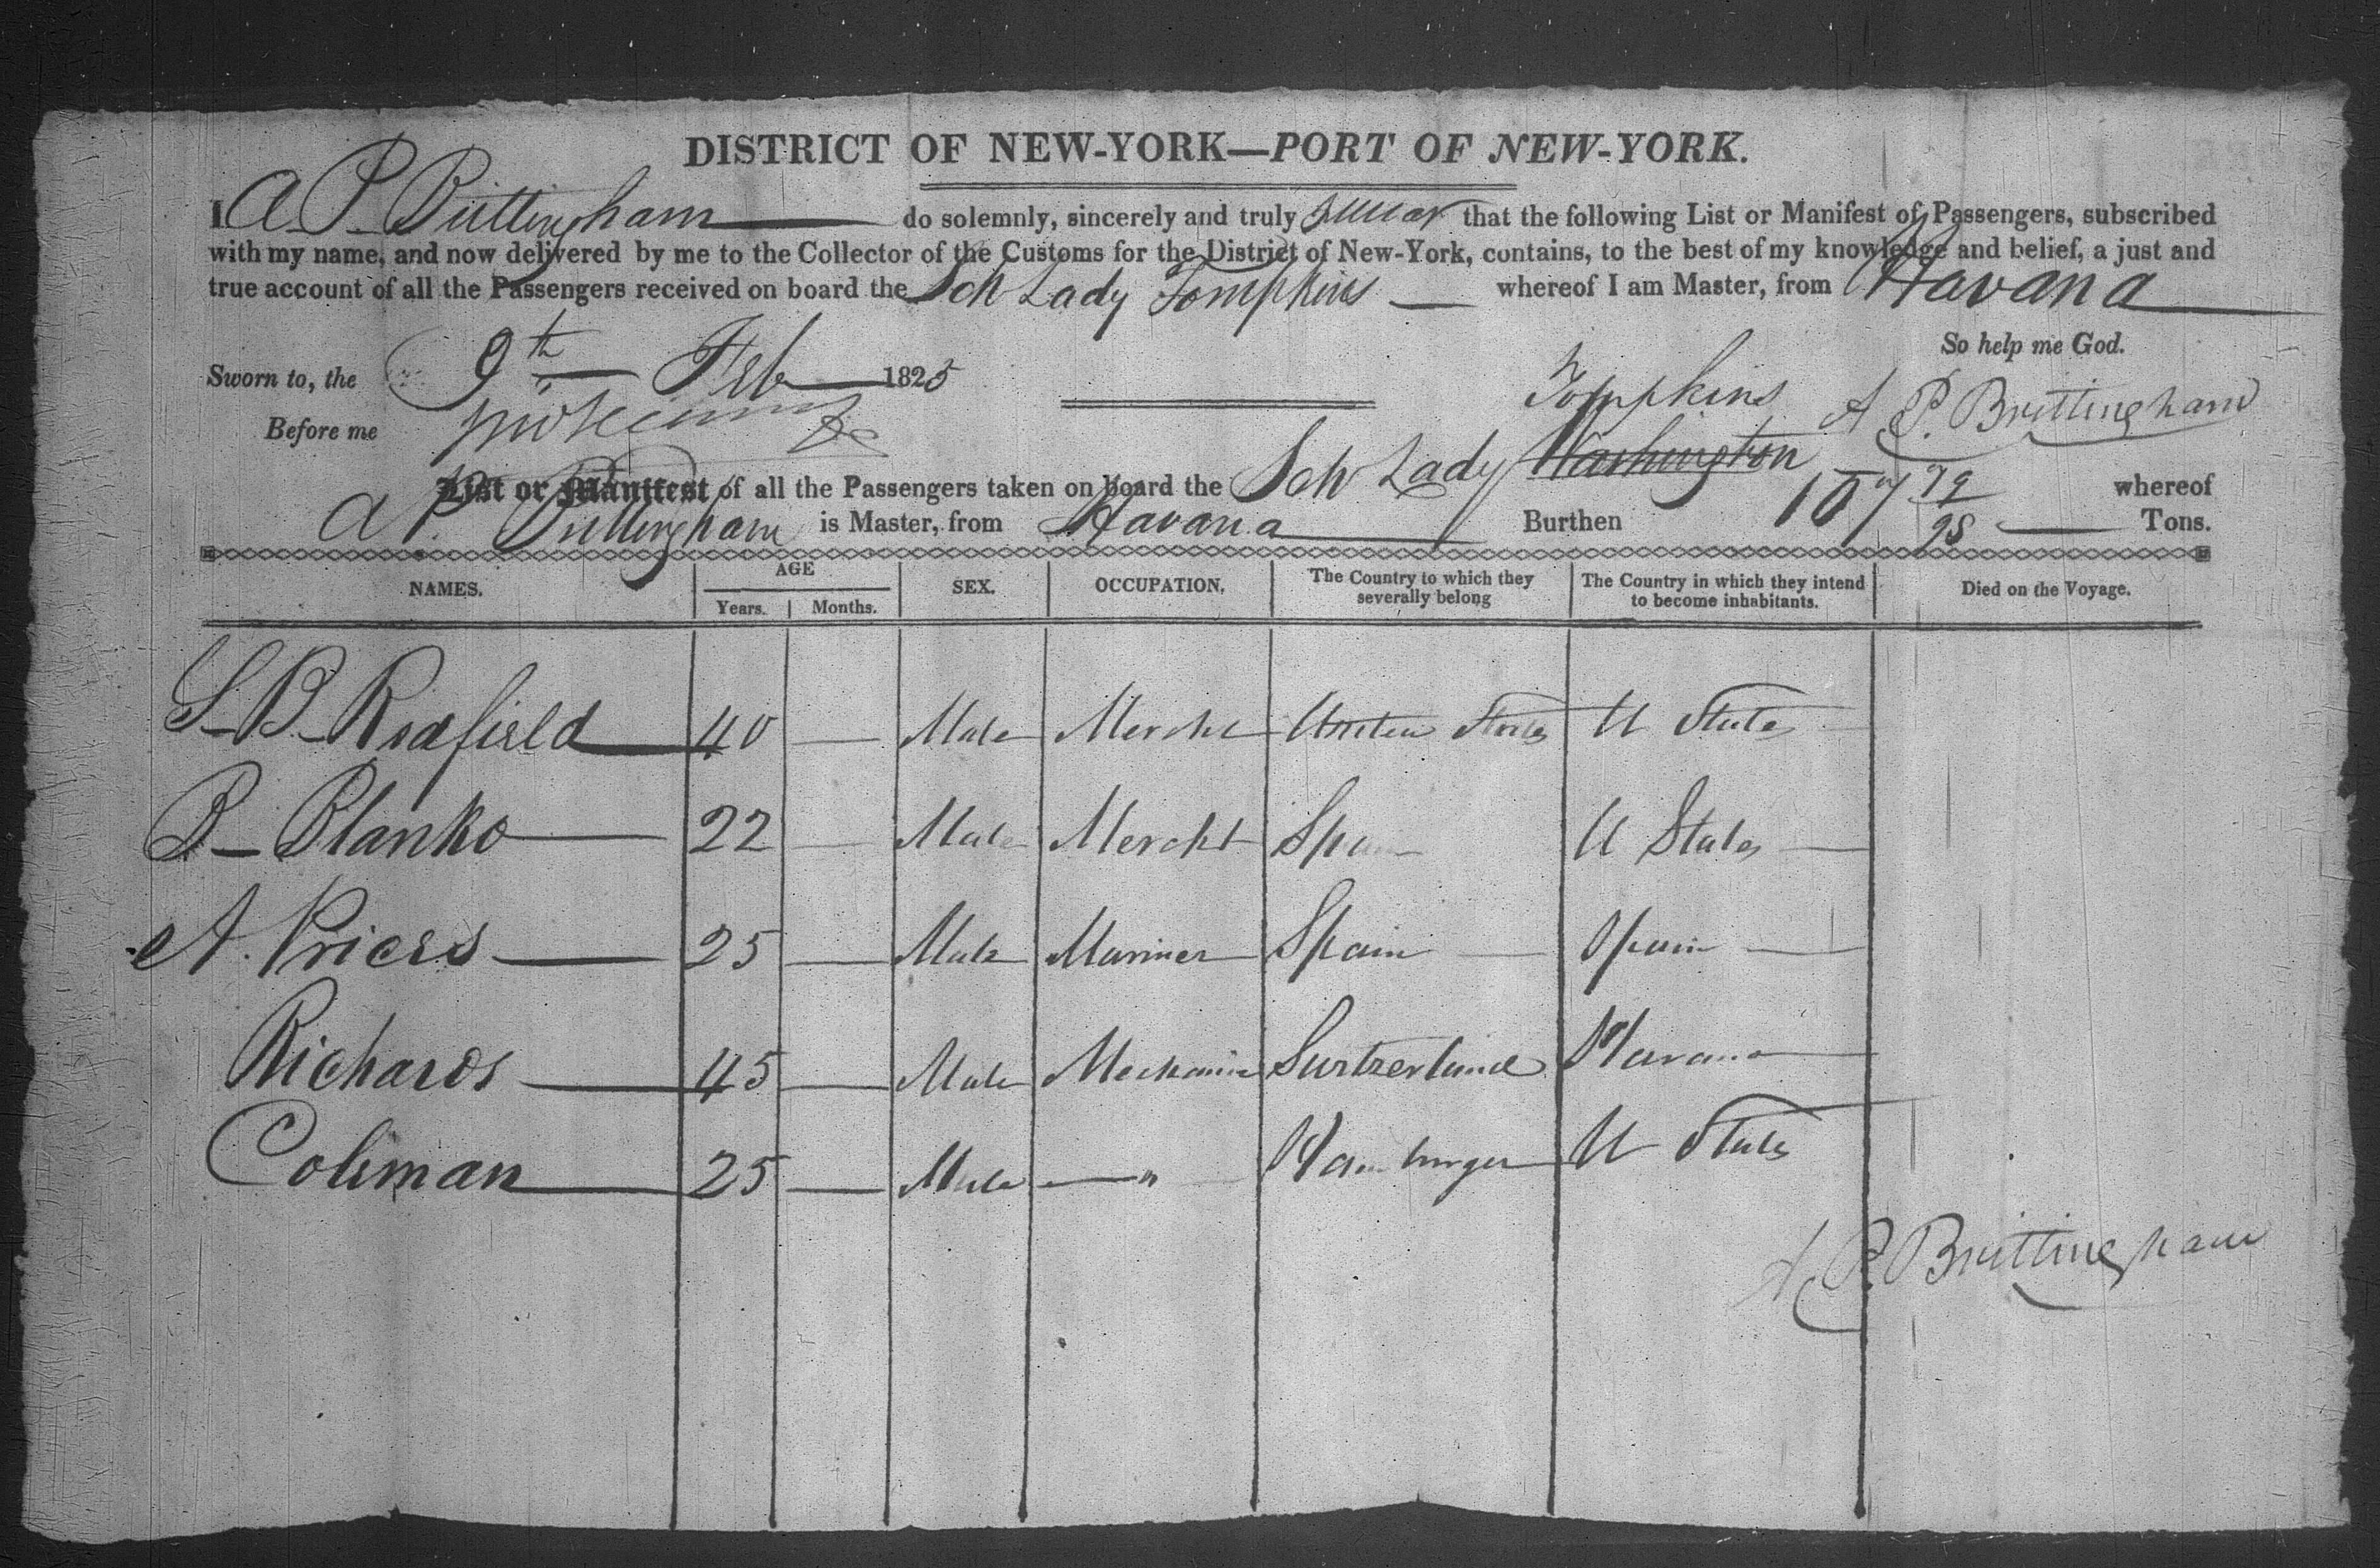 DISTRICT OF NEW-YORK—PORT OF NEW-YORK.
I A. P. Brittingham do solemnly, sincerely and truly swear that the following List or Manifest of Passengers, subscribed
with my name, and now delivered by me to the Collector of the Customs for the District of New-York, contains, to the best of my knowledge and belief, a just and
true account of all the Passengers received on board the Sch Lady Tompkins whereof I am Master, from Havana
So help me God.
Sworn to, the 9th Feb 1825
Tompkins
A P. Brittingham
Before me
List or Manifest of all the Passengers taken on board the Sch Lady Washington 107 79/95 whereof
A P. Brittingham is Master, from Havana Burthen Tons.
NAMES. AGE Years. Months. SEX. OCCUPATION. The Country to which they severally belong The Country in which they intend to become inhabitants. Died on the Voyage.
S. B. Redfield 40 — Male Mercht United States U States
P — Blanko 22 — Male Mercht Spain U States —
A. Priers 25 — Male Mariner Spain — Spain —
Richards 45 — Male Mechanic Switzerland Havana
Coleman 25 — Male — " Hamburger U States
A P. Brittingham